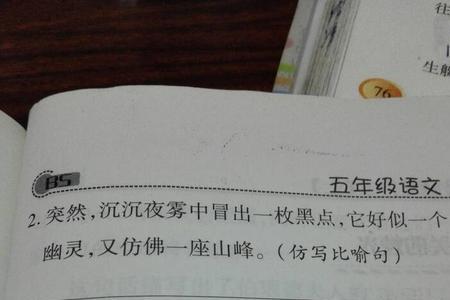 往
生
76
BS
五年级语文
2.突然,沉沉夜雾中冒出一枚黑点,它好似一个
幽灵,又仿佛一座山峰。(仿写比喻句)